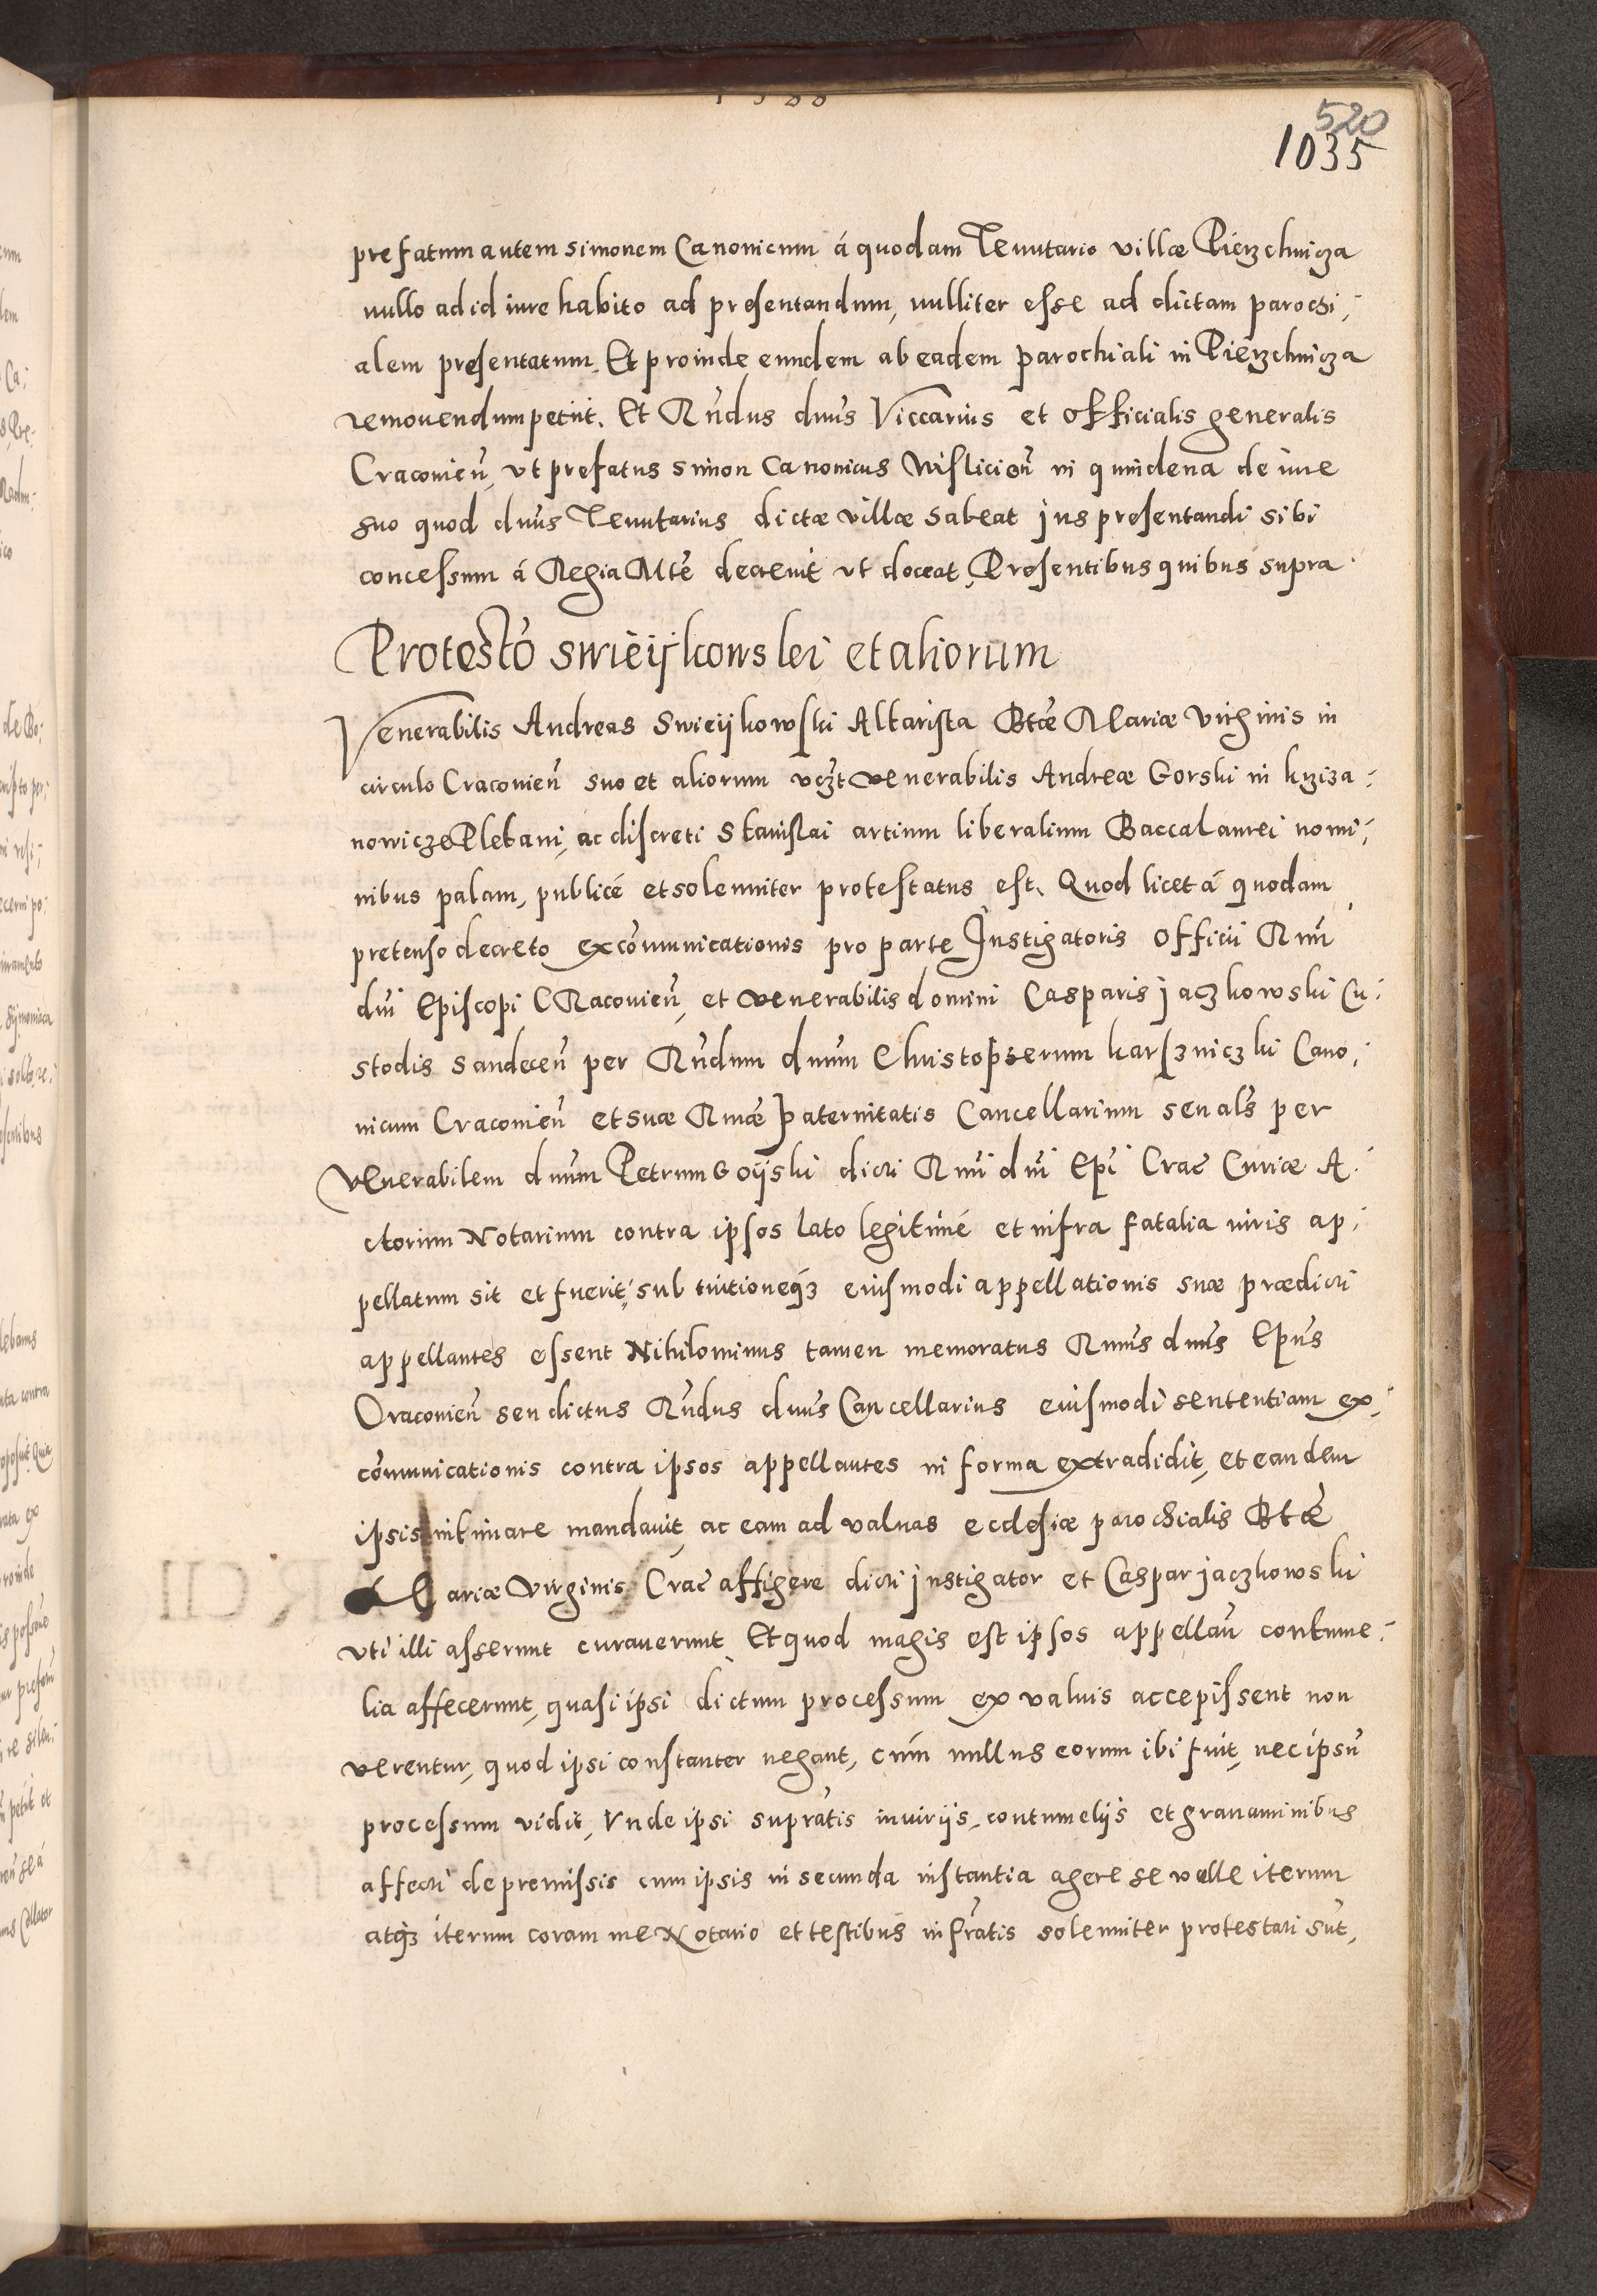 520
1035
prefatum autem simonem Canonicum á quodam Tenutario villæ Pierzchnicza
nullo ad id iure habito ad presentandum, nulliter esse ad dictam parochi,
alem presentatum. Et proinde eundem ab eadem parochiali in Pierzchnicza
remouendum petiit. Et Rńdus dnus Viccarius et Officialis generalis
Craconień, vt prefatus simon Canonicus Wislicień in quindena de iure
suo quod dnus Tenutarius dictæ villæ habeat jus presentandi sibi
concessum á Regia Mte decreuit vt doceat, Presentibus quibus supra
Protesto swieijkowskj et aliorum
Venerabilis Andreas Swieijkowski Altarista Btæ Mariæ virginis in
circulo Craconień suo et aliorum vczt venerabilis Andreæ Gorski in krziza,
nowicze Plebani, ac discreti Stanislai artium liberalium Baccalaurei nomi,
nibus palam, publicé et solenniter protestatus est. Quod licet á quodam
pretenso decreto excomunicationis pro parte Instigatoris Officii Rmi
dni Episcopi CRaconień, et venerabilis domini Casparis jaczkowski Cu,
stodis Sandeceń per Rńdum dnum Christopherum karszniczki Cano,
nicum Craconień et suæ Rmæ paternitatis Cancellarium seu als per
venerabilem dnum Petrum Goijski dicti Rmi dni Epi Crac Curiæ A,
ctorum Notarium contra ipsos lato legitimé et infra fatalia iuris ap,
pellatum sit et fuerit, sub tuitioneq3 eiusmodi appellationis suæ prædicti
appellantes essent Nihilominus tamen memoratus Rmus dnus Epus
Craconień seu dictus Rńdus dnus Cancellarius eiusmodi sententiam ex,
comunicationis contra ipsos appellantes in forma extradidit, et eandem
ipsis intimare mandauit, ac eam ad valuas ecclesiæ parochialis Btæ
Mariæ Virginis Crac affigere dicti jnstigator et Caspar jaczkowski
vti illi asserunt curauerunt Et quod magis est ipsos appellań contume,
lia affecerunt, quasi ipsi dictum processum ex valuis accepissent non
verentur, quod ipsi constanter negant, cum nullus eorum ibi fuit, nec ipsu
processum vidit, Vnde ipsi supratis iniuriis, contumelijs et grauaminibus
affecti de premissis cum ipsis in secunda instantia agere se velle iterum
atq3 iterum coram me Notario et testibus infratis solenniter protestati sut,